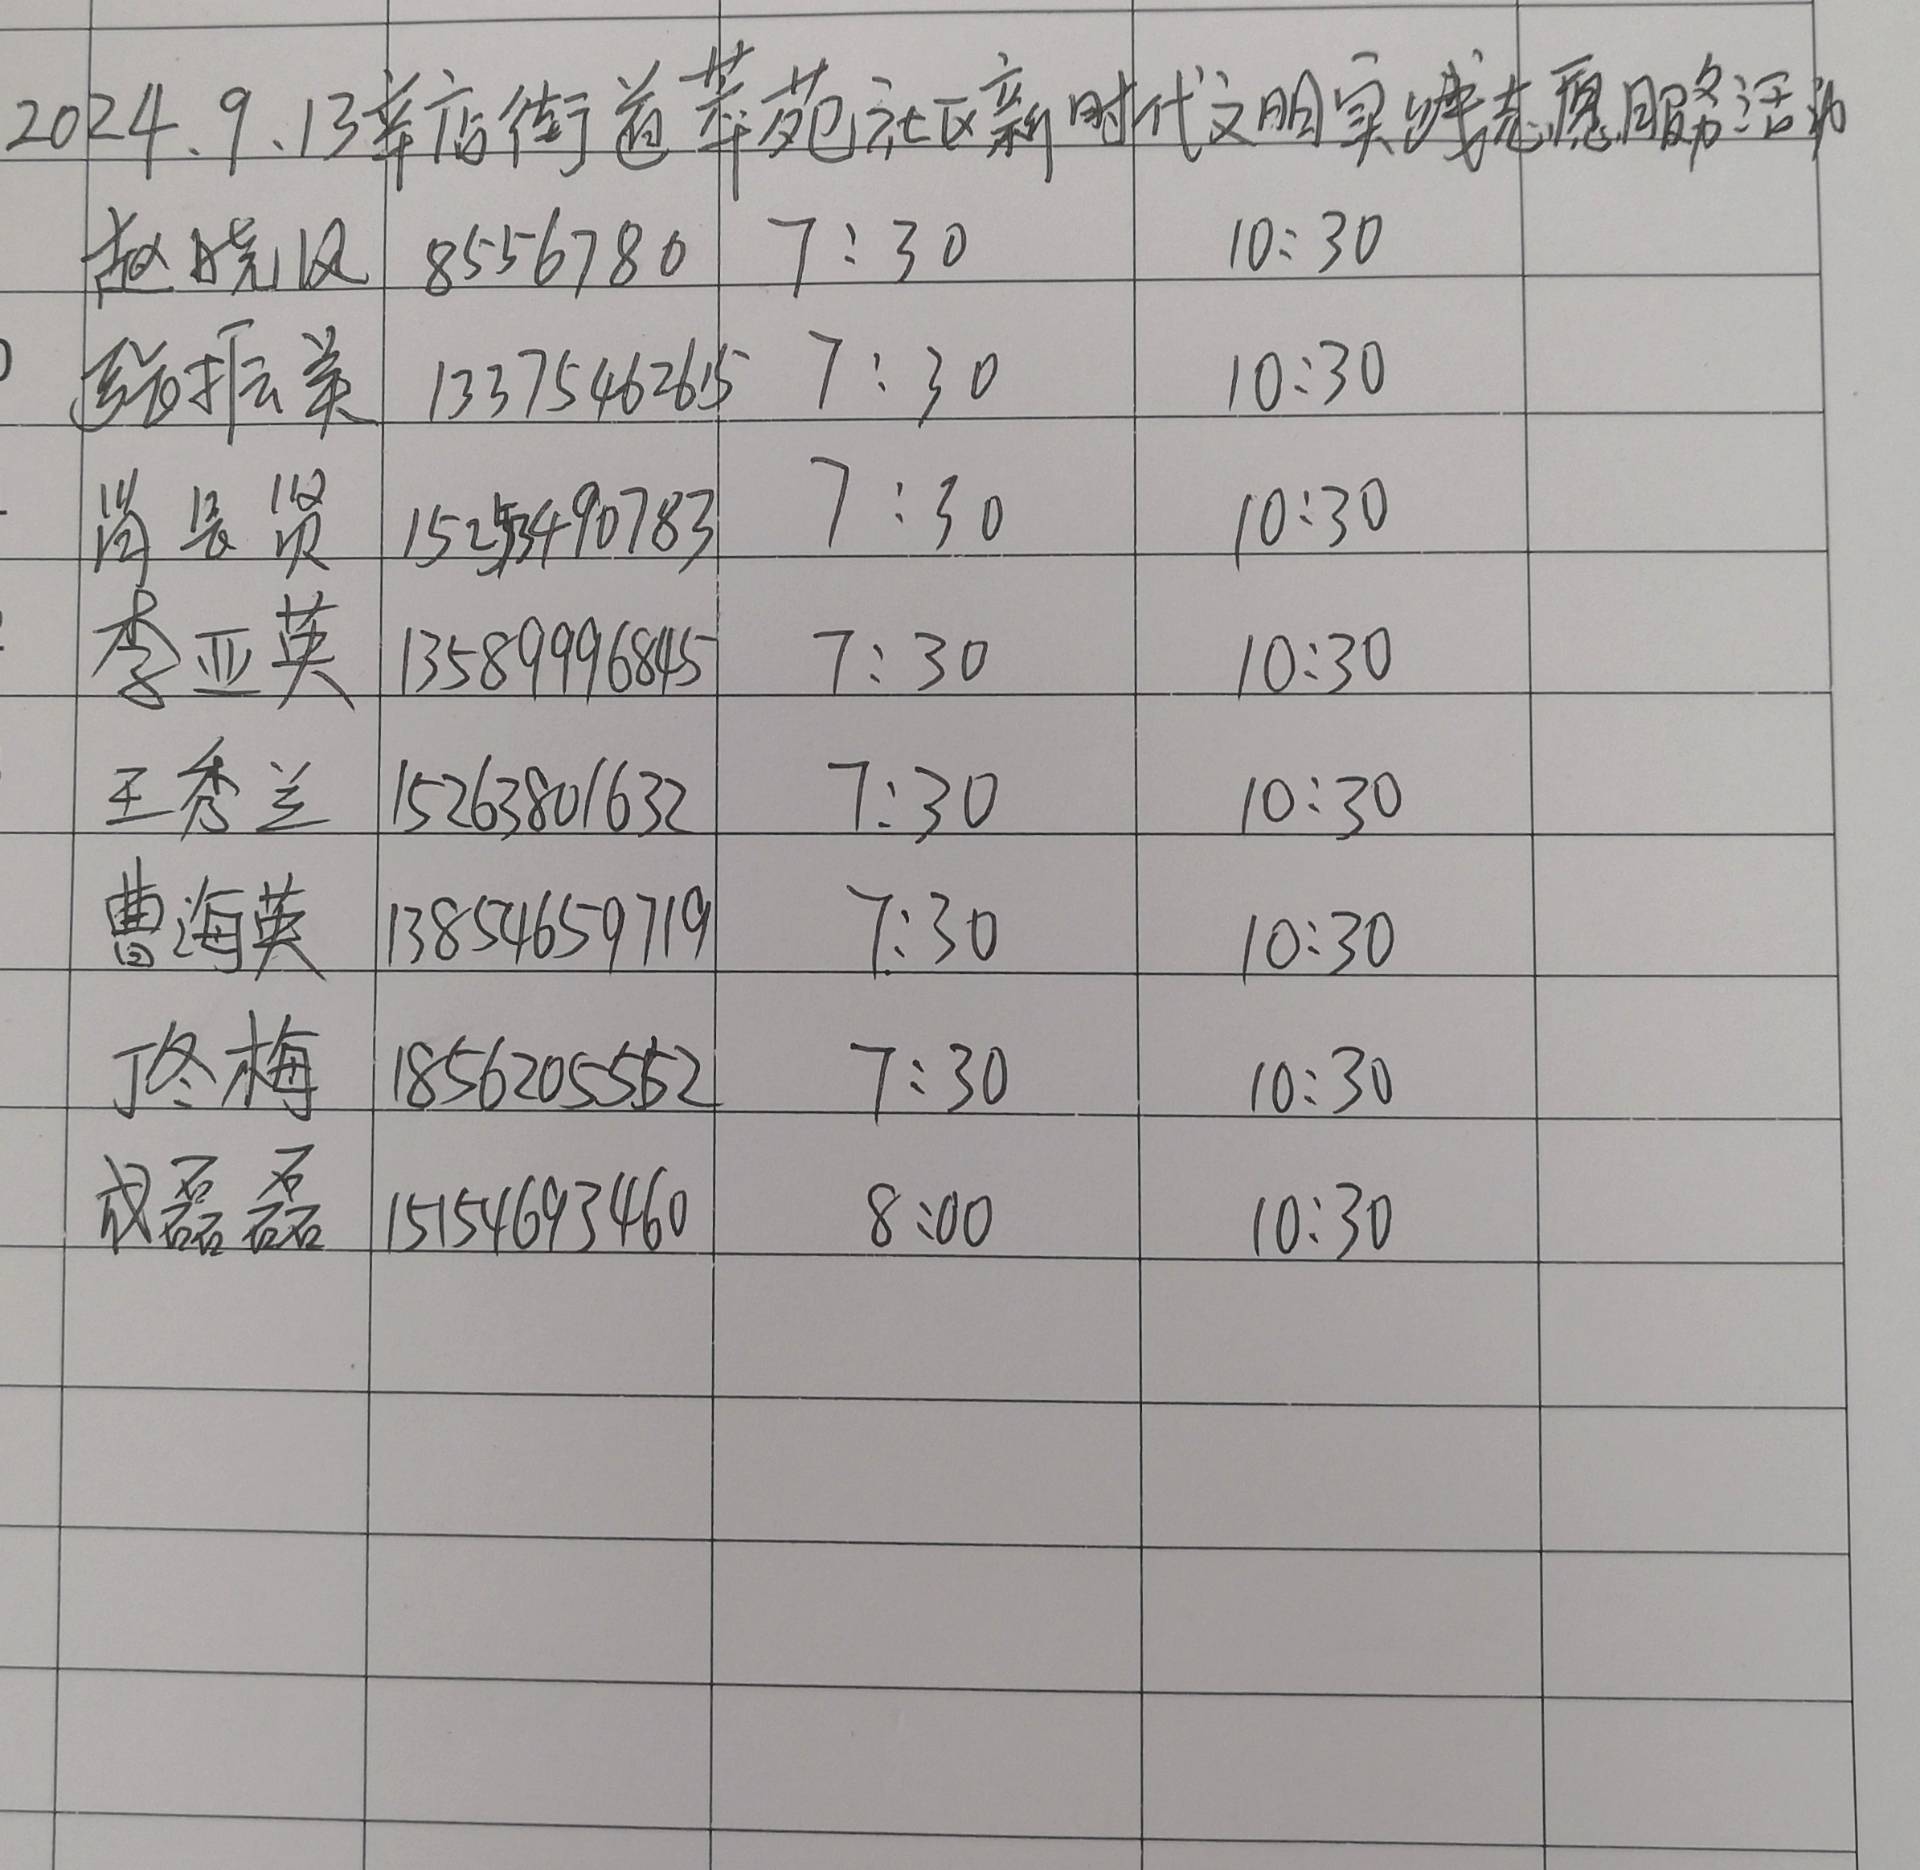 2024.9.13辛店街道萃苑社区新时代文明实践志愿服务活动
赵晓汉 8556780 7:30 10:30
振美 13375462615 7:30 10:30
尚长贤 15253490783 7:30 10:30
李亚英 13589996845 7:30 10:30
王秀兰 15263801632 7:30 10:30
曹海英 13854659719 7:30 10:30
丁冬梅 18562055552 7:30 10:30
成磊磊 15154693460 8:00 10:30